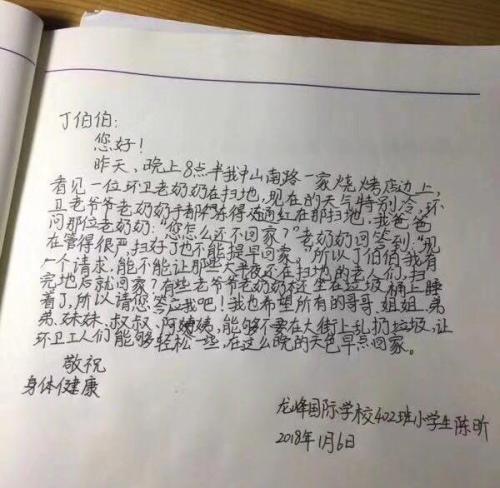 丁伯伯:
您好!
昨天、晚上8点半我中山南路一家烧烤店边上,
看见一位环卫老奶奶在扫地,现在的天气特别冷,环
卫老爷爷老奶奶手都冻得通红在那扫地,我爸爸
问那位老奶奶:“您怎么还不回家?”老奶奶回答到:“现
在管得很严,扫好了也不能提早回家,”所以丁伯伯我有
一个请求,能不能让那些大半夜还在扫地的老人们,扫
完地后就回家?有些老爷爷老奶奶坐在垃圾桶上睡
着了,所以请您答应我吧!我也希望所有的哥哥、姐姐、弟
弟、妹妹、叔叔、阿姨,能够不要在大街上乱扔垃圾,让
环卫工人们能够轻松一些,在这么晚的天色早点回家。
敬祝
身体健康
龙峰国际学校402班小学生陈昕
2018年1月6日